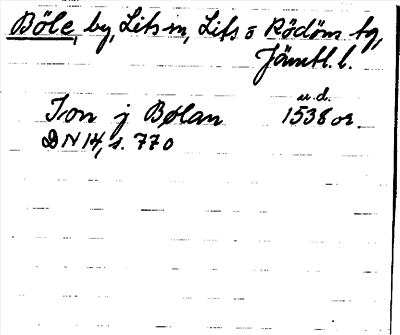 Böle, by, Lits sn, Lits o Rödöns tg,
Jämtl. l.
u.d.
Ion j Bølan 1538 or.
DN 14, s. 770